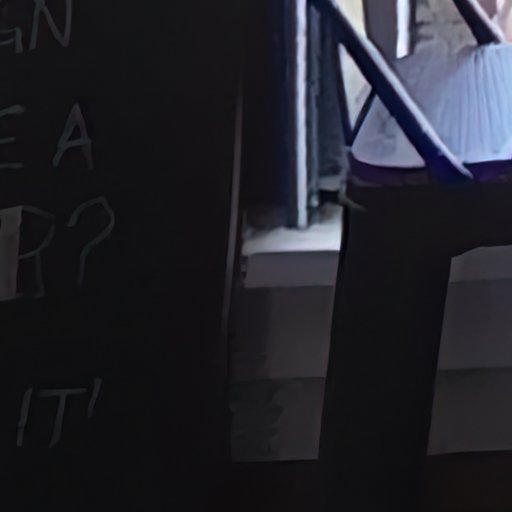 GN
E A
R?
IT'